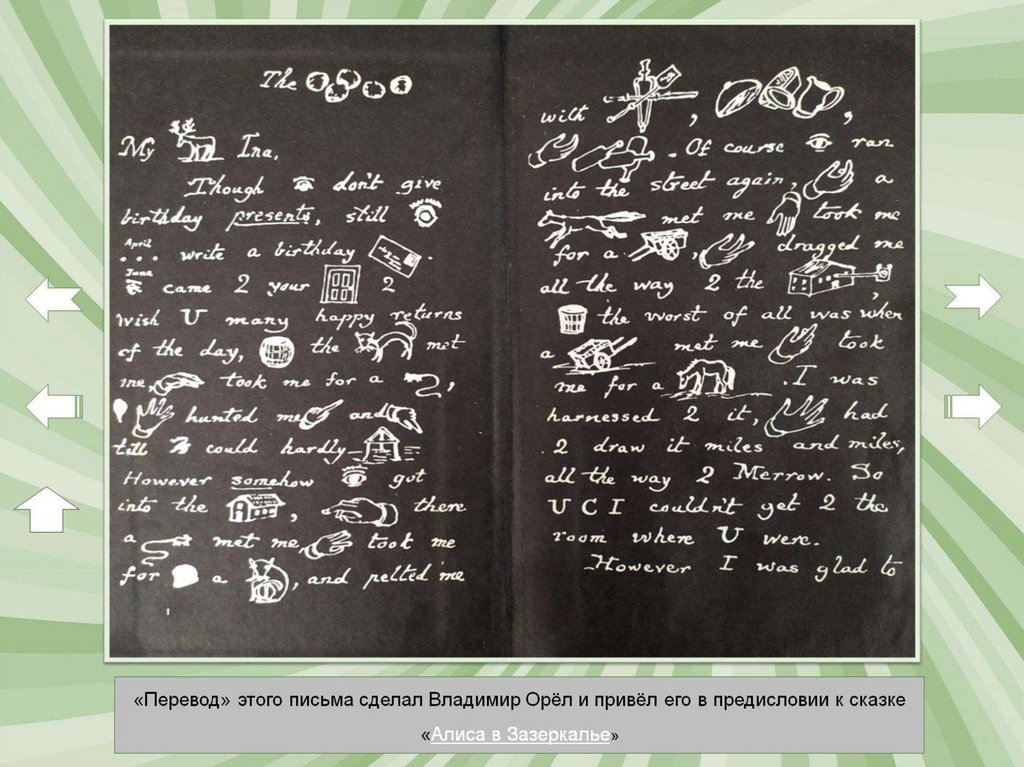 The
My Ina,
Though don't give
birthday presents, still
April
... write a birthday .
June
came 2 your 2
wish U many happy returns
of the day, the met
me, took me for a ,
hunted me and
till could hardly
However somehow got
into the , there
a met me, took me
for a , and pelted me
with , ,
. Of course ran
into the street again, a
met me took me
for a , dragged me
all the way 2 the ,
the worst of all was when
a met me took
me for a . I was
harnessed 2 it, had
2 draw it miles and miles,
all the way 2 Merrow. So
U C I couldn't get 2 the
room where U were.
However I was glad to
«Перевод» этого письма сделал Владимир Орёл и привёл его в предисловии к сказке
«Алиса в Зазеркалье»